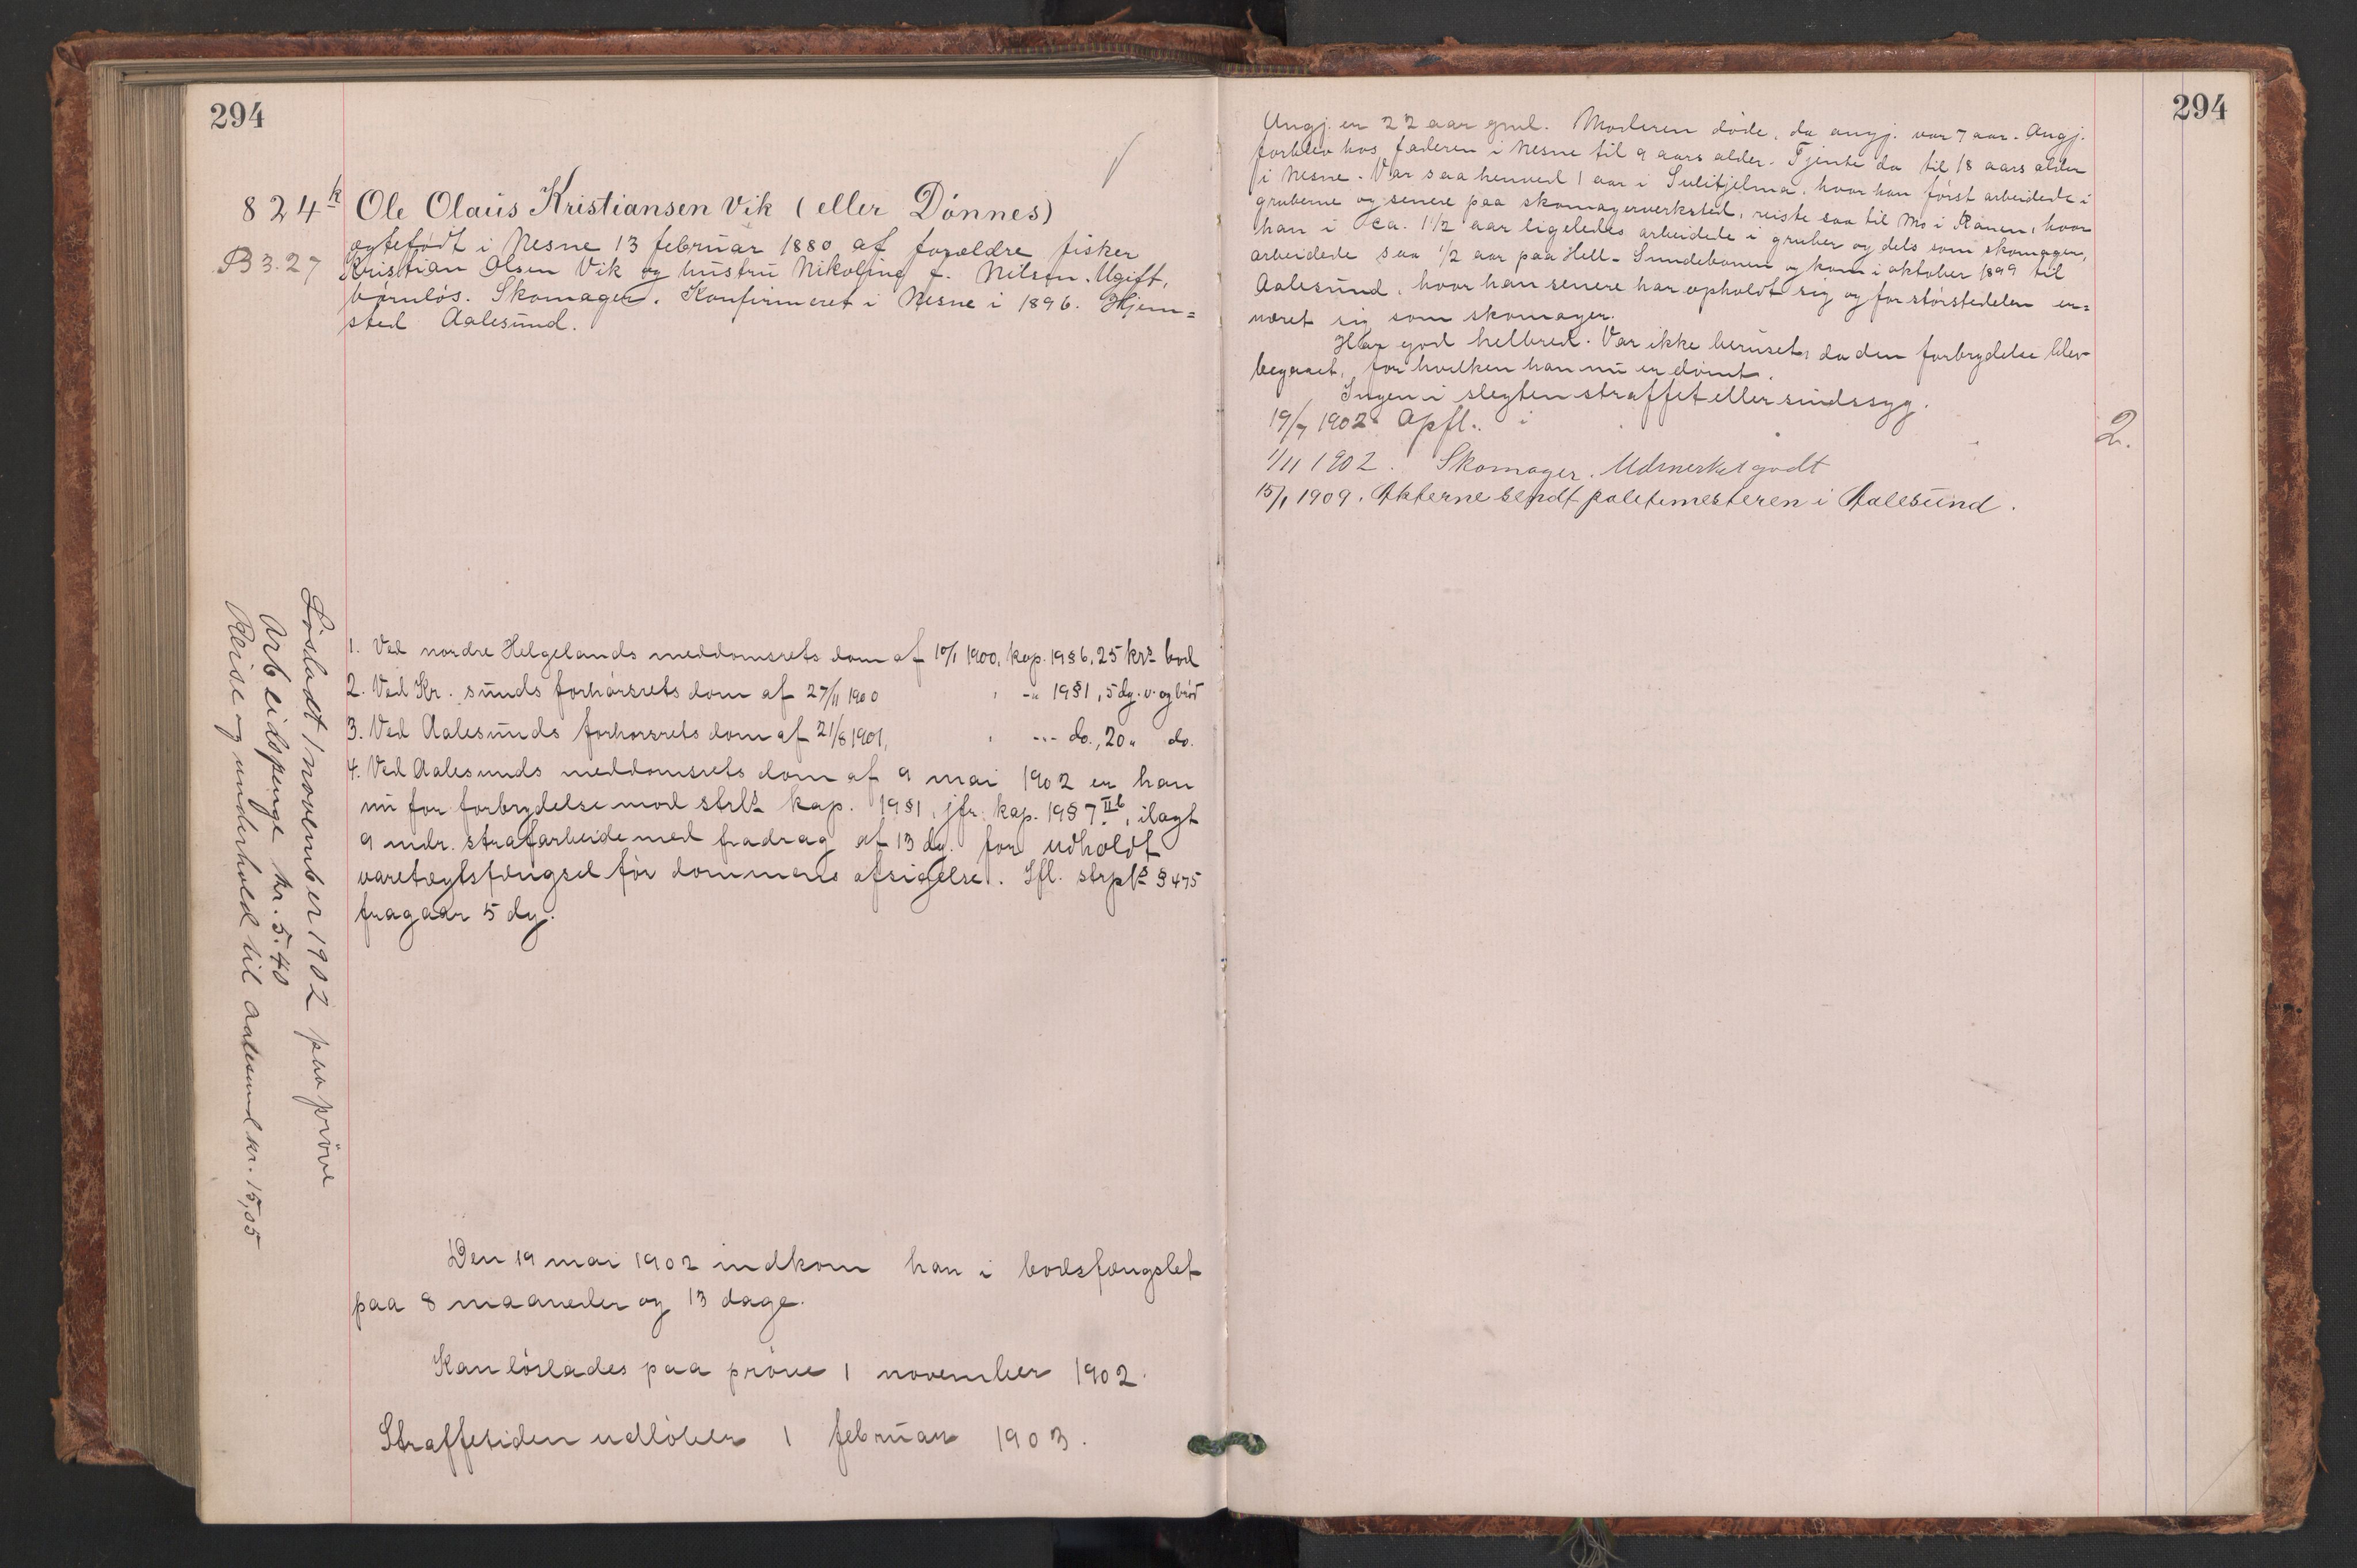 294
824 k Ole Olaus Kristiansen Vik (eller Dönnes)
B 3.27
egtefödt i Nesne 13 februar 1880 af forældre fisker
Kristian Olsen Vik og hustru Nikoline f. Nilsen. Ugift,
börnlös. Skomager. Konfirmeret i Nesne i 1896. Hjem=
sted Aalesund.
1. Ved nordre Helgelands meddomsrets dom af 10/1 1900, kap. 19 § 6, 25 krs bod
2. Ved Kr. sunds forhörsrets dom af 27/11 1900 " -„ 19 § 1, 5 dg. v. og bröd
3. Ved Aalesunds forhörsrets dom af 21/8 1901, " --- do., 20 „ do.
4. Ved Aalesunds meddomsrets dom af 9 mai 1902 er han
nu for forbrydelse mod strls kap. 19 § 1, jfr. kap. 19 § 7 II b, ilagt
9 mdr. strafarbeide med fradrag af 13 dg. for udholdt
varetægtsfængsel för dommens afsigelse. Ifl. strpls § 475
fragaar 5 dg.
Lösladt 1 november 1902 paa pröve
Arbeidspenge kr. 5.40
Reise og underhold til Aalesund kr. 15,05
Den 19 mai 1902 indkom han i bodsfængslet
paa 8 maaneder og 13 dage.
Kan löslades paa pröve 1 november 1902.
Straffetiden udlöber 1 februar 1903.
294
Angj. er 22 aar gml. Moderen döde, da angj. var 7 aar. Angj.
forblev hos faderen i Nesne til 9 aars alder. Tjente da til 18 aars alder
i Nesne. Var saa henved 1 aar i Sulitjelma, hvor han först arbeidede i
gruberne og senere paa skomagerverksted, reiste saa til Mo i Ranen, hvor
han i ca. 1 1/2 aar ligeledes arbeidede i gruber og dels som skomager,
arbeidede saa 1/2 aar paa Hell-Sundebanen og kom i oktober 1899 til
Aalesund, hvor han senere har opholdt sig og for störstedelen er=
næret sig som skomager.
Har god helbred. Var ikke beruset, da den forbrydelse blev
begaaet, for hvilken han nu er dömt.
Ingen i slegten straffet eller sindssyg.
19/7 1902. Opfl. 2.
1/11 1902. Skomager. Udmerket godt
15/1 1909. Akterne sendt politimesteren i Aalesund.